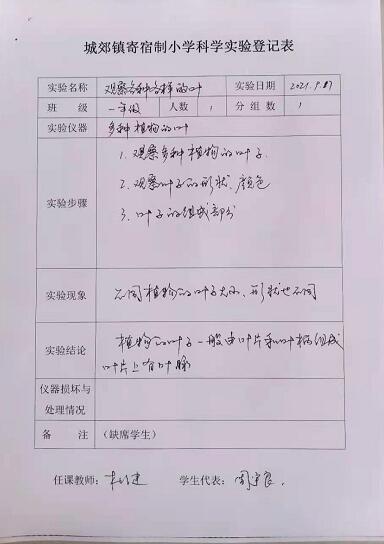 城郊镇寄宿制小学科学实验登记表
实验名称 观察各种各样的叶 实验日期 2021.9.17
班 级 一年级 人数 1 分组数 1
实验仪器 多种植物的叶
实验步骤
1. 观察多种植物的叶子.
2. 观察叶子的形状、颜色
3. 叶子的组成部分
实验现象 不同植物的叶子大小、形状也不同
实验结论 植物的叶子一般由叶片和叶柄组成
叶片上有叶脉
仪器损坏与
处理情况
备 注 (缺席学生)
任课教师: 学生代表: